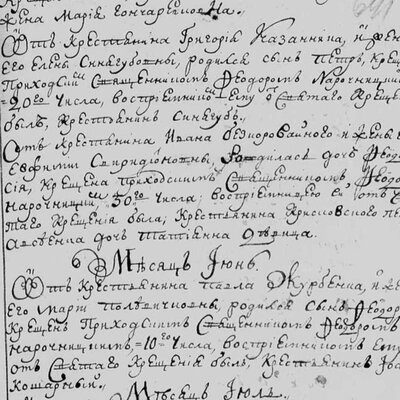 жена Марія Гончаренкова.
Отъ крестьянина Григорія Казанника, и жены
его Елены Синегубовны, родился сынъ Петръ, крещ
приходскимъ священникомъ Феодоромъ Нарочницкимъ
=20го числа, воспріемникомъ ему от святаго крещен
былъ, крестьянинъ Синегубъ.
Отъ крестьянина Ивана и жены е
Евфиміи Спиридоновны, родилась дочь Феодо
сія, крещена приходскимъ священникомъ Феодо
Нарочницкимъ, 30го числа, воспріемницею ей отъ с
таго крещенія была, крестьянина
дочь Татіанна дѣвица.
Мѣсяцъ Іюнь.
Отъ крестьянина Павла Журбенка, и же
его Марѳ родился сынъ Феодоръ
крещенъ приходскимъ священникомъ Феодоромъ
Нарочницкимъ, =10го числа, воспріемникомъ ему
отъ святаго крещенія былъ, крестьянинъ Іва
Кошарный.
Мѣсяцъ Іюль.